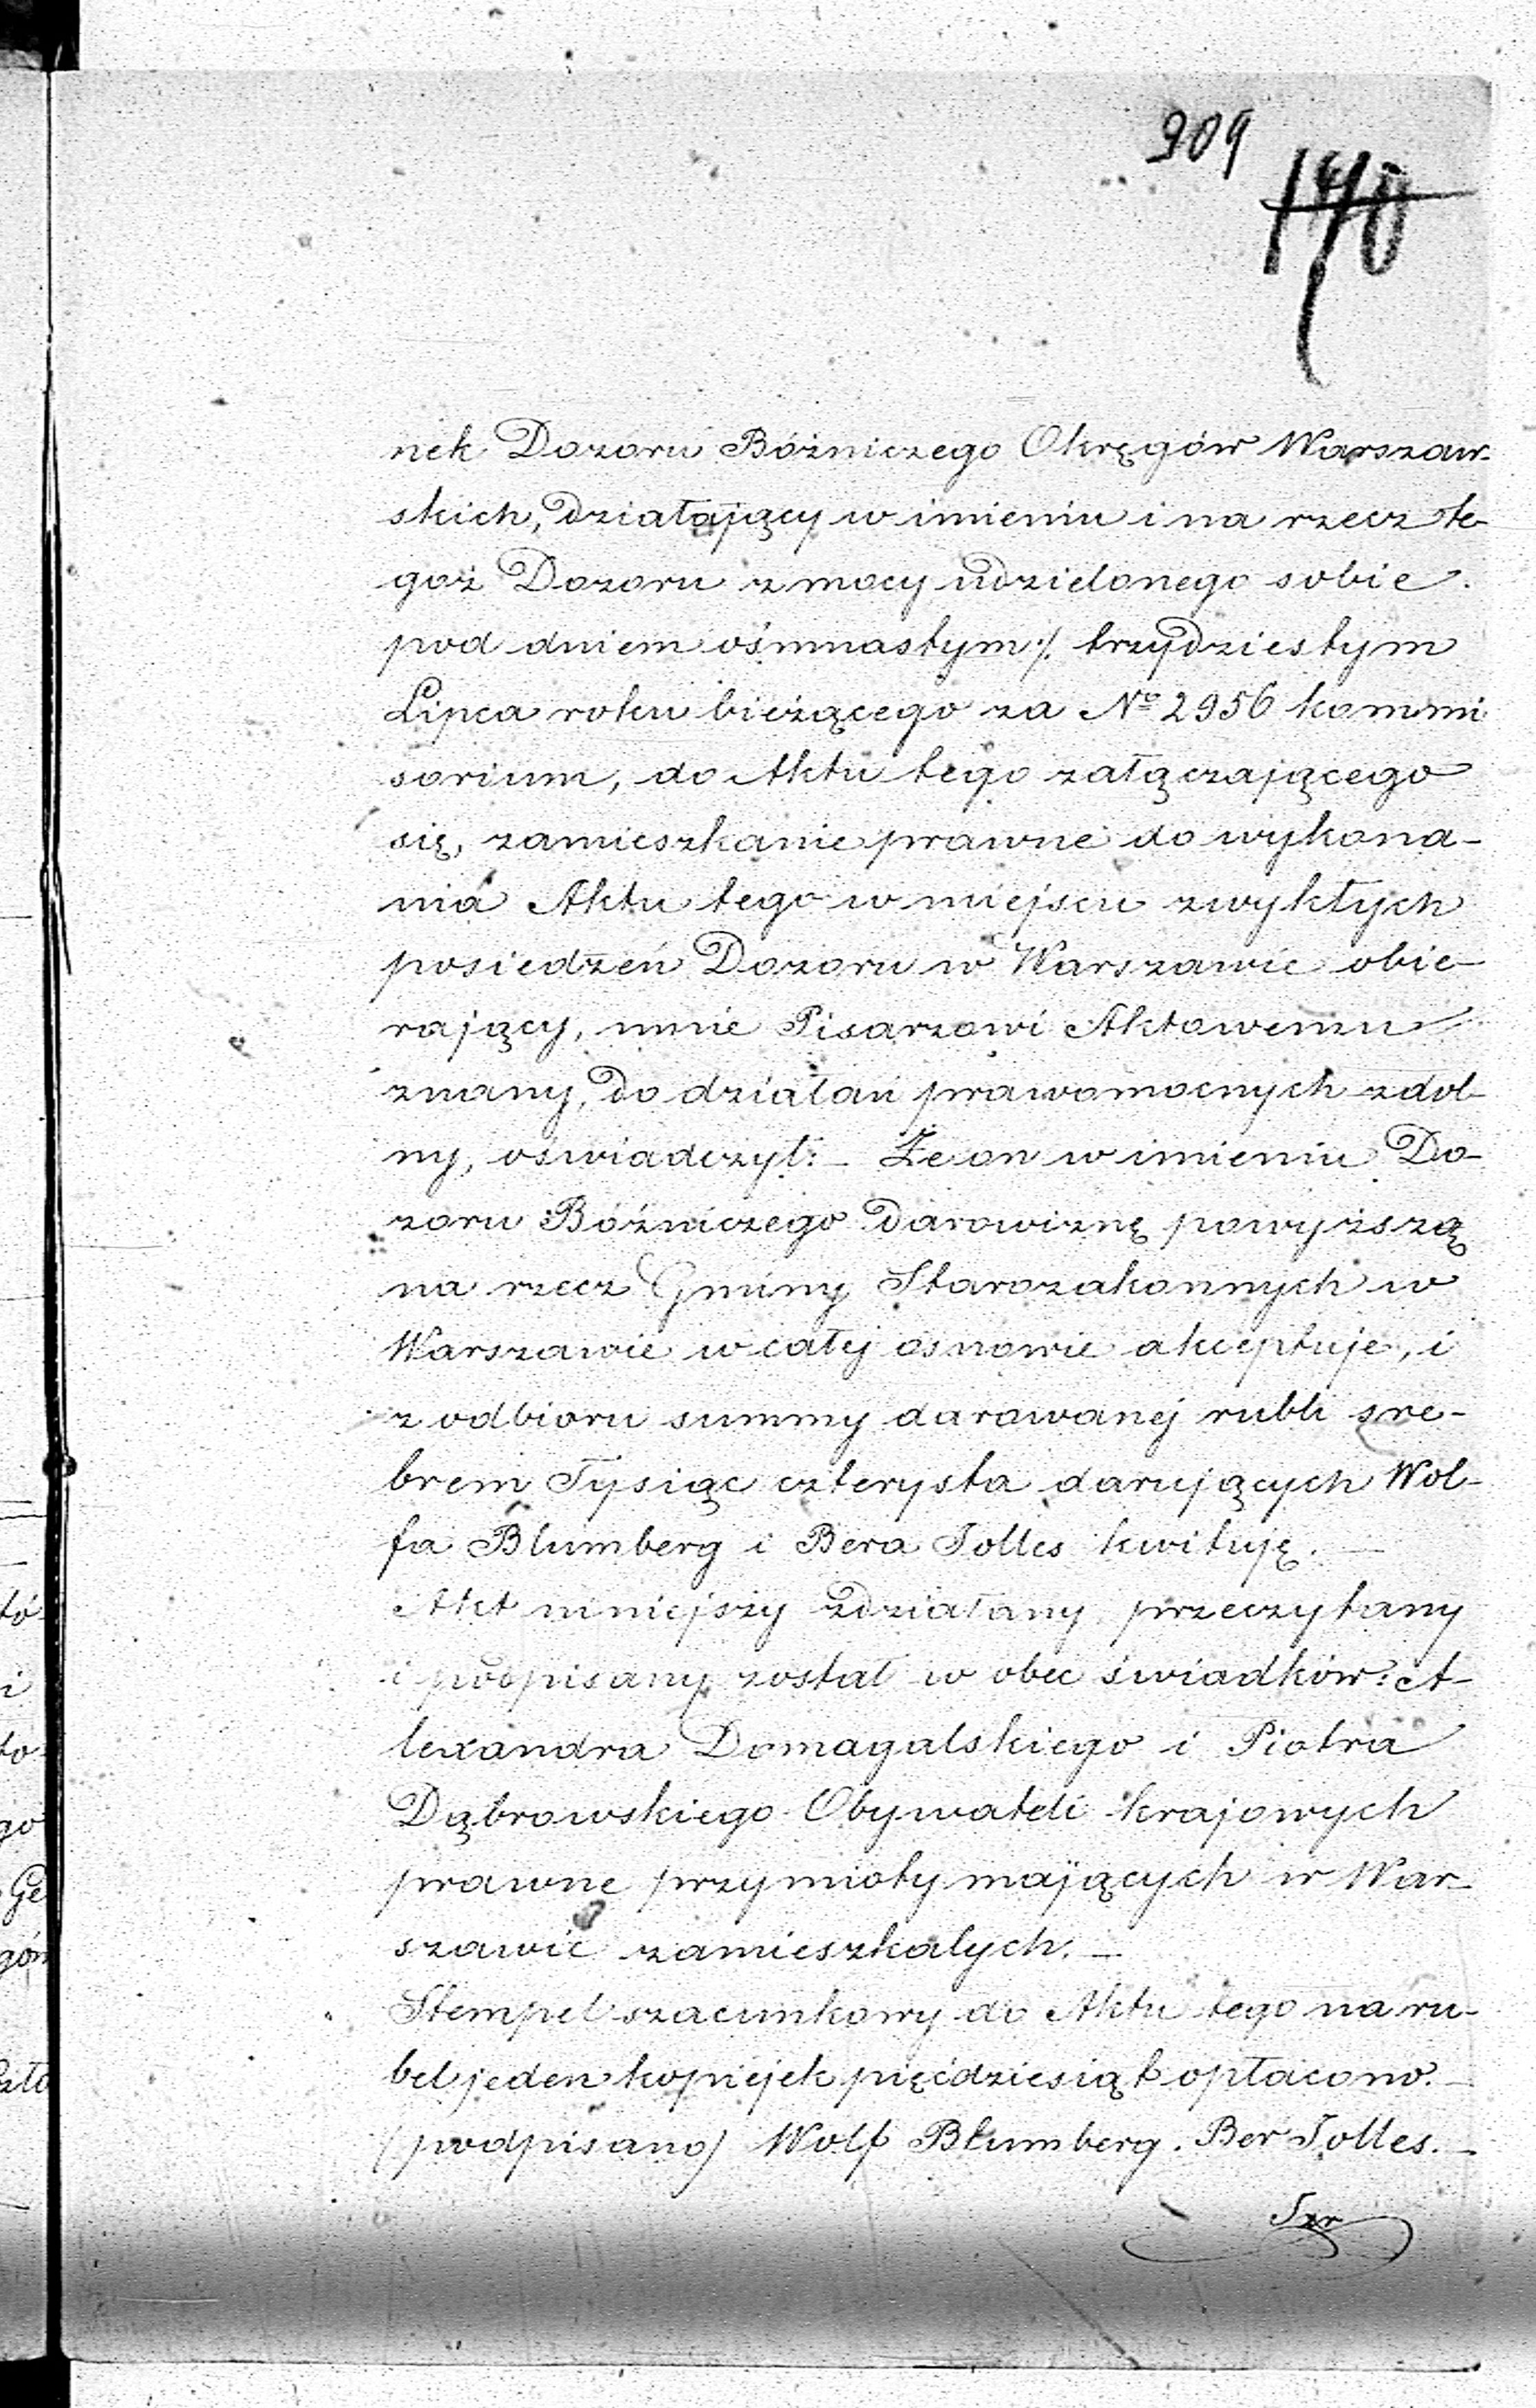 209
140
nek Dozoru Bóźniczego Okręgów Warszaw-
skich, działający w imieniu i na rzecz te-
goż Dozoru z mocy udzielonego sobie
pod dniem ośmnastym /. trzydziestym
Lipca roku bieżącego za No 2956 kommi
sorium, do Aktu tego załączającego
się, zamieszkanie prawne do wykona-
nia Aktu tego w miejscu zwykłych
posiedzeń Dozoru w Warszawie obie-
rający, mnie Pisarzowi Aktowemu
znany, do działań prawomocnych zdol-
ny, oświadczył: – Że on w imieniu Do-
zoru Bóźniczego darowiznę powyższą
na rzecz Gminy Starozakonnych w
Warszawie w całej osnowie akceptuje, i
z odbioru summy darowanej rubli sre-
brem Tysiąc czterysta darujących Wol-
fa Blumberg i Bera Tolles kwituję. —
Akt niniejszy zdziałany przeczytany
i podpisany został w obec świadków: A-
lexandra Domagalskiego i Piotra
Dąbrowskiego Obywateli krajowych
prawne przymioty mających w War-
szawie zamieszkałych. –
Stempel szacunkowy do Aktu tego na ru-
bel jeden kopiejek pięćdziesiąt opłacono. –
(podpisano) Wolf Blumberg. Ber Tolles. –